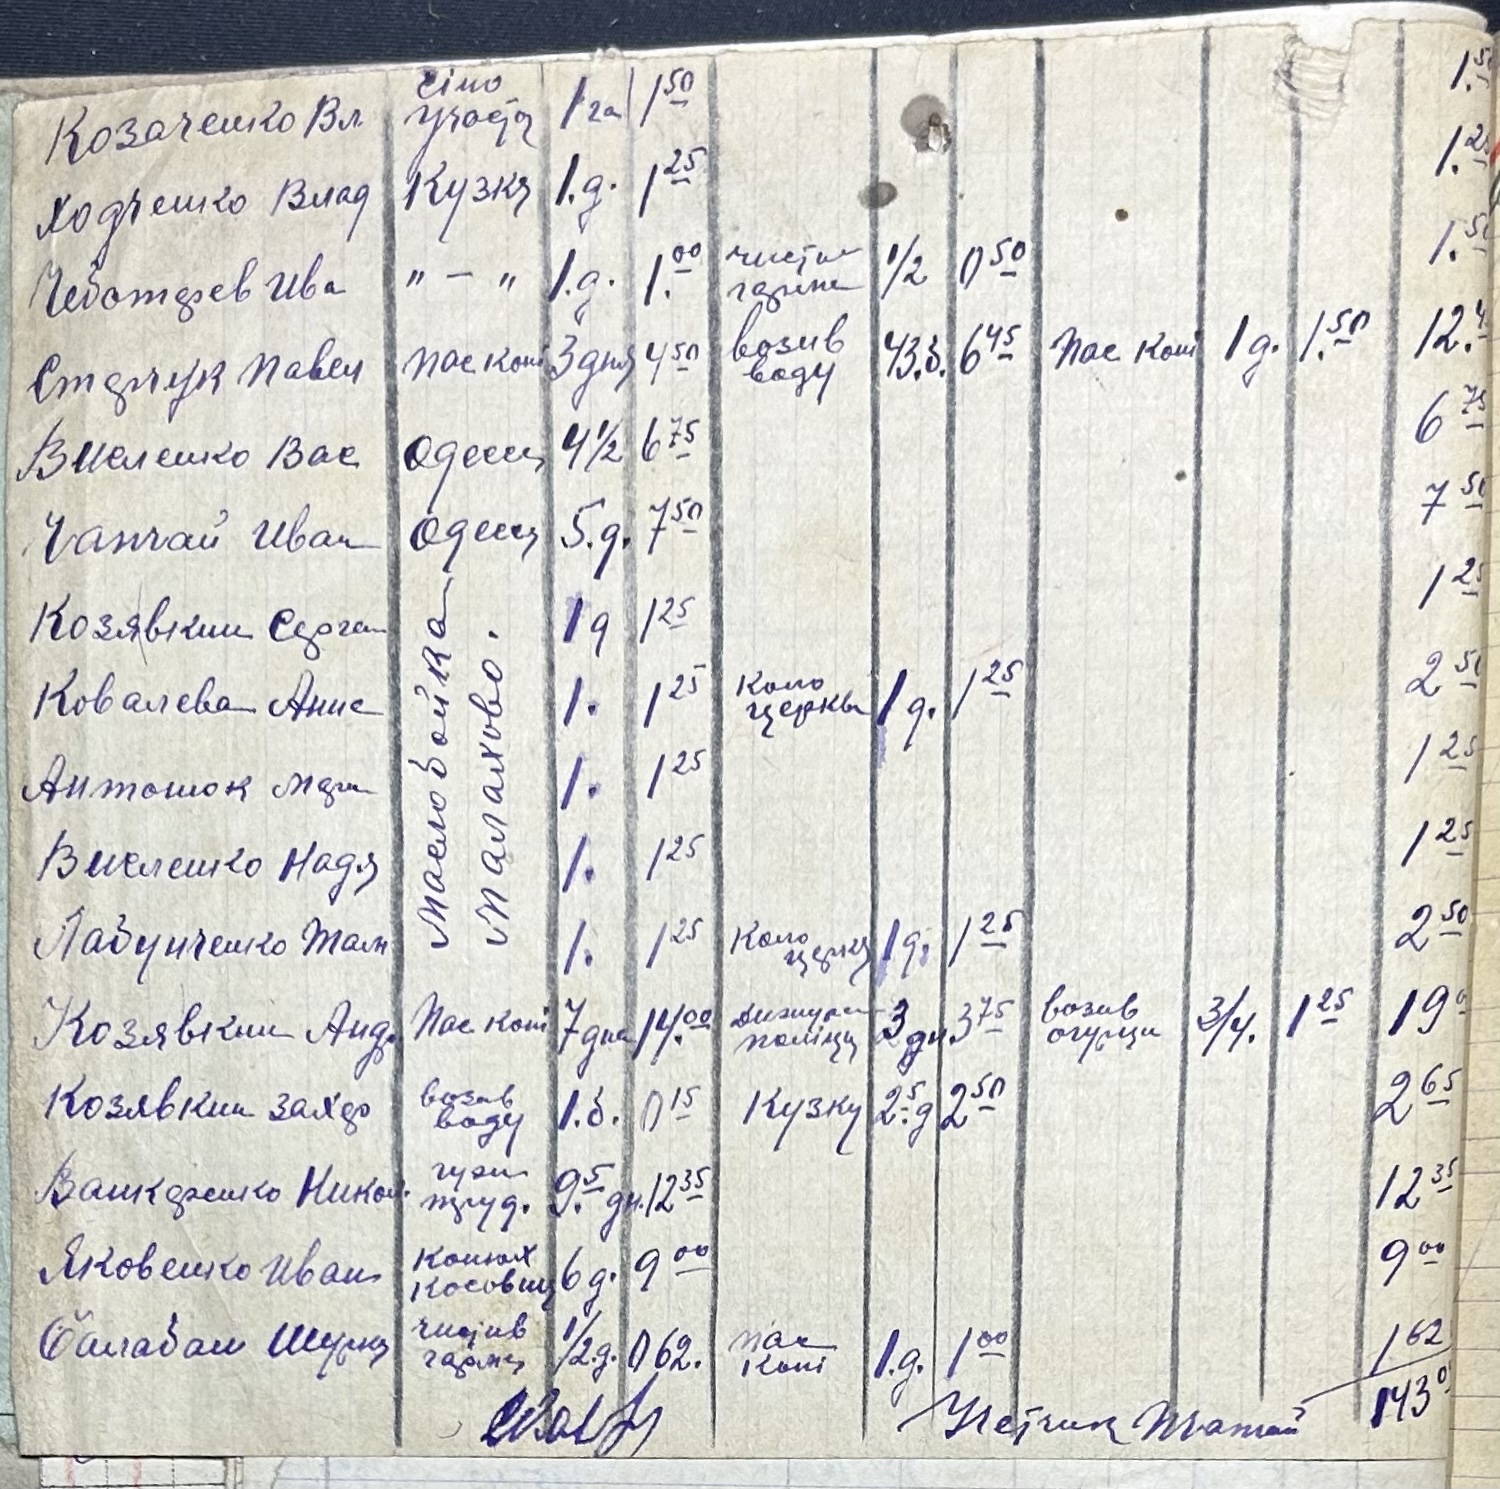 Козаченко Вл сіно 1 га 1 50 1.50
Ходченко Влад Кузня 1.д. 1 25 1.25
Чеботарев Ива " — " 1.д. 1.00 чистив гарман 1/2 0 50 1.50
Павел Пас коні 3 дня 4 50 возив воду 43.б. 6 45 Пас коні 1 д. 1.50 12.4
Висленко Вас Одесса 4 1/2 6 75 6 75
Чапчай Иван Одесса 5.д. 7 50 7 50
Козявкин 1 д 1 25 1 25
Ковалева Анна 1. 1 25 коло церкви 1 д. 1 25 2 50
Антонюк Мари 1. 1 25 1 25
Висленко Надя 1. 1 25 1 25
Лабунченко 1. 1 25 коло церкви 1 д. 1 25 2 50
Маслобойка
Малахово.
Козявкин Андр. Пас коні 7 дна 14.00 поліции 3 дн. 3 75 возив огурци 3/4. 1 25 19
Козявкин Захар возив воду 1.б. 0 15 Кузня 2.5 д 2 50 2 65
Никол. 9.5 дн. 12 35 12 35
Яковенко Иван конюх 6 д. 9 00 9 00
Балабан Шура чистив гарман 1/2.д. 0 62. пас коні 1.д. 1 00 1 62
Учетчик 143